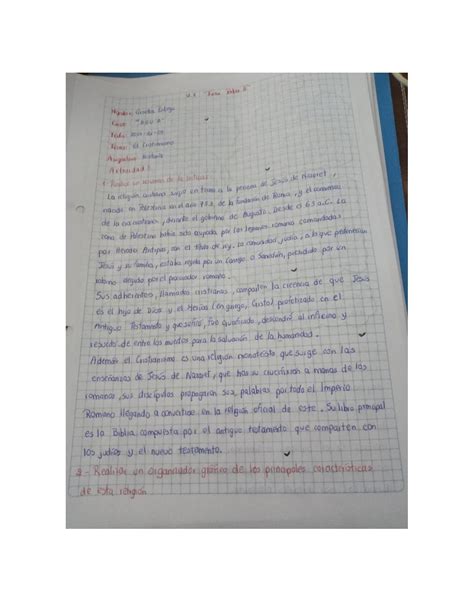 Nombre:
Curso: "
Fecha:
Tema: El Cristianismo
Asignatura: Historia
Actividad 1
1.- Realizar un resumen de
La religión cristiana surge en torno a la persona de Jesús de Nazaret,
nacido en Palestina en el año 753 de la fundación de Roma, y el comienzo
de la era cristiana, durante el gobierno de Augusto. Desde el 63 a.C. La
zona de Palestina había sido ocupada por las legiones romanas comandadas
por Herodes Antipas, con el título de rey, la comunidad judía, a la que pertenecían
Jesús y su familia, estaba regida por un Consejo o Sanedrín, presidido por un
dirigido por el procurador romano.
Sus adherentes, llamados cristianos, comparten la creencia de que Jesús
es el hijo de Dios y el Mesías (en griego, Cristo) profetizado en el
Antiguo Testamento y que fue crucificado, descendió al infierno y
resucitó de entre los muertos para la salvación de la humanidad.
Además el Cristianismo es una religión monoteísta que surge con las
enseñanzas de Jesús de Nazaret, que tras su crucifixión a manos de los
romanos, sus discípulos propagaron sus palabras por todo el Imperio
Romano llegando a convertirse en la religión oficial de este, Su libro principal
es la Biblia compuesta por el antiguo testamento que comparten con
los judíos y el nuevo testamento.
2.- Realizar un organizador gráfico de las principales características
de esta religión